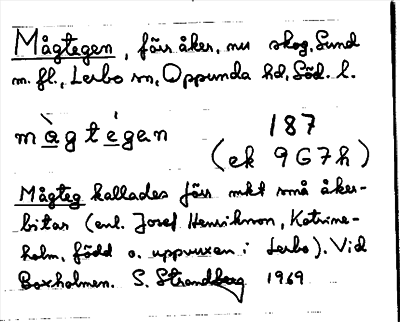 Mågtegen, förr åker, nu skog, Sund
m. fl., Lerbo sn, Oppunda hd, Söd. l.
mằgtégan 187
(ek 9G7h)
Mågteg kallades förr mkt små åker-
bitar (enl. Josef Henrikson, Katrine-
holm, född o. uppvuxen i Lerbo). Vid
Boxholmen. S. Strandberg 1969